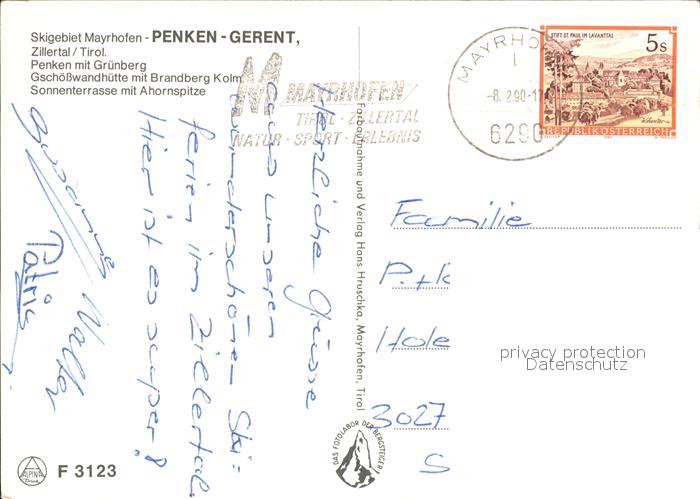 Skigebiet Mayrhofen - PENKEN - GERENT,
Zillertal / Tirol.
Penken mit Grünberg
Gschößwandhütte mit Brandberg Kolm
Sonnenterrasse mit Ahornspitze
MAYRHOFEN
TIROL · ZILLERTAL
NATUR · SPORT · ERLEBNIS
MAYRHO
-8. 2.90-11
6290
STIFT ST. PAUL IM LAVANTTAL
5 S
REPUBLIK ÖSTERREICH
Herzliche Grüsse
aus unseren
wunderschönen Ski=
ferien im Zillertal.
Hier ist es super!
Walter
Patric
Farbaufnahme und Verlag Hans Hruschka, Mayrhofen, Tirol
Familie
P. + K
Hole
3027
S
privacy protection
Datenschutz
DAS FOTOLABOR DER BERGSTEIGER
ALPINA
Druck
F 3123